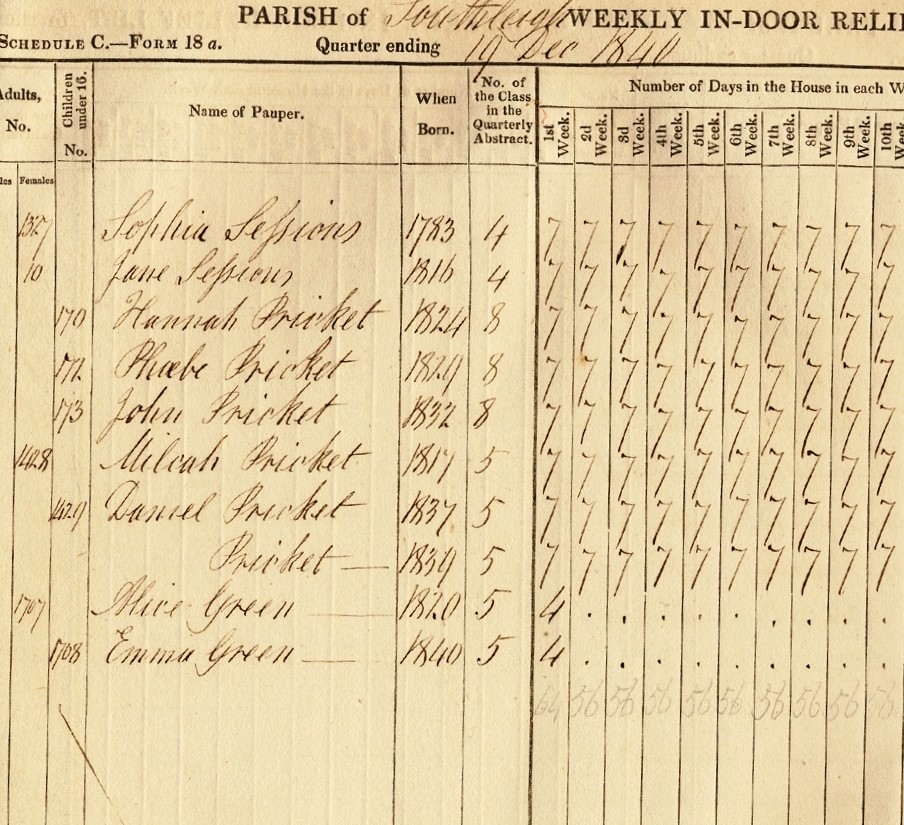 PARISH of Southleigh WEEKLY IN-DOOR RELI
SCHEDULE C.—FORM 18 a. Quarter ending 19 Dec 1840
Adults, No. Children under 16. No. Name of Pauper. When Born. No. of the Class in the Quarterly Abstract. Number of Days in the House in each W
1st Week. 2d Week. 3d Week. 4th Week. 5th Week. 6th Week. 7th Week. 8th Week. 9th Week. 10th Week
les Females
1527 Sophia Sessions 1783 4 7 7 7 7 7 7 7 7 7 7
10 Jane Sessions 1816 4 7 7 7 7 7 7 7 7 7 7
170 Hannah Pricket 1824 8 7 7 7 7 7 7 7 7 7 7
172 Phœbe Pricket 1829 8 7 7 7 7 7 7 7 7 7 7
173 John Pricket 1832 8 7 7 7 7 7 7 7 7 7 7
1428 Milcah Pricket 1817 5 7 7 7 7 7 7 7 7 7 7
1429 Daniel Pricket 1837 5 7 7 7 7 7 7 7 7 7 7
Pricket — 1839 5 7 7 7 7 7 7 7 7 7 7
1707 Alice Green — 1820 5 4 . . . . . . . . .
1708 Emma Green — 1840 5 4 . . . . . . . . .
64 56 56 56 56 56 56 56 56 56